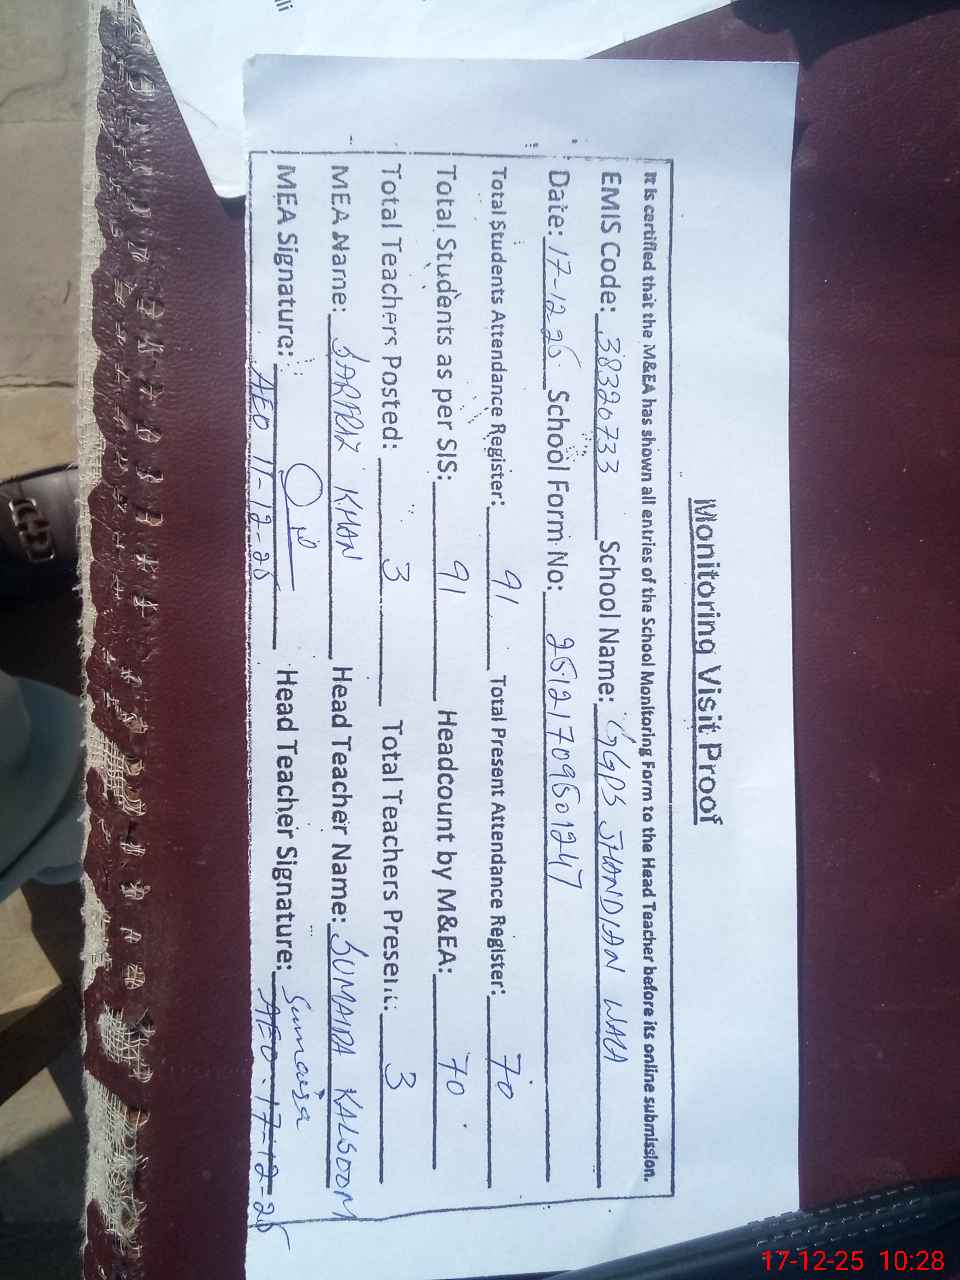 Monitoring Visit Proof
It is certified that the M&EA has shown all entries of the School Monitoring Form to the Head Teacher before its online submission.
EMIS Code: 38320733 School Name: GGPS JHANDIAN WALA
Date: 17-12-25 School Form No: 25121709501247
Total Students Attendance Register: 91 Total Present Attendance Register: 70
Total Students as per SIS: 91 Headcount by M&EA: 70
Total Teachers Posted: 3 Total Teachers Present: 3
MEA Name: SARFRAZ KHAN Head Teacher Name: SUMAIRA KALSOOM
MEA Signature: Head Teacher Signature: Sumaira
AEO 11-12-25 AEO. 17-12-25
17-12-25 10:28